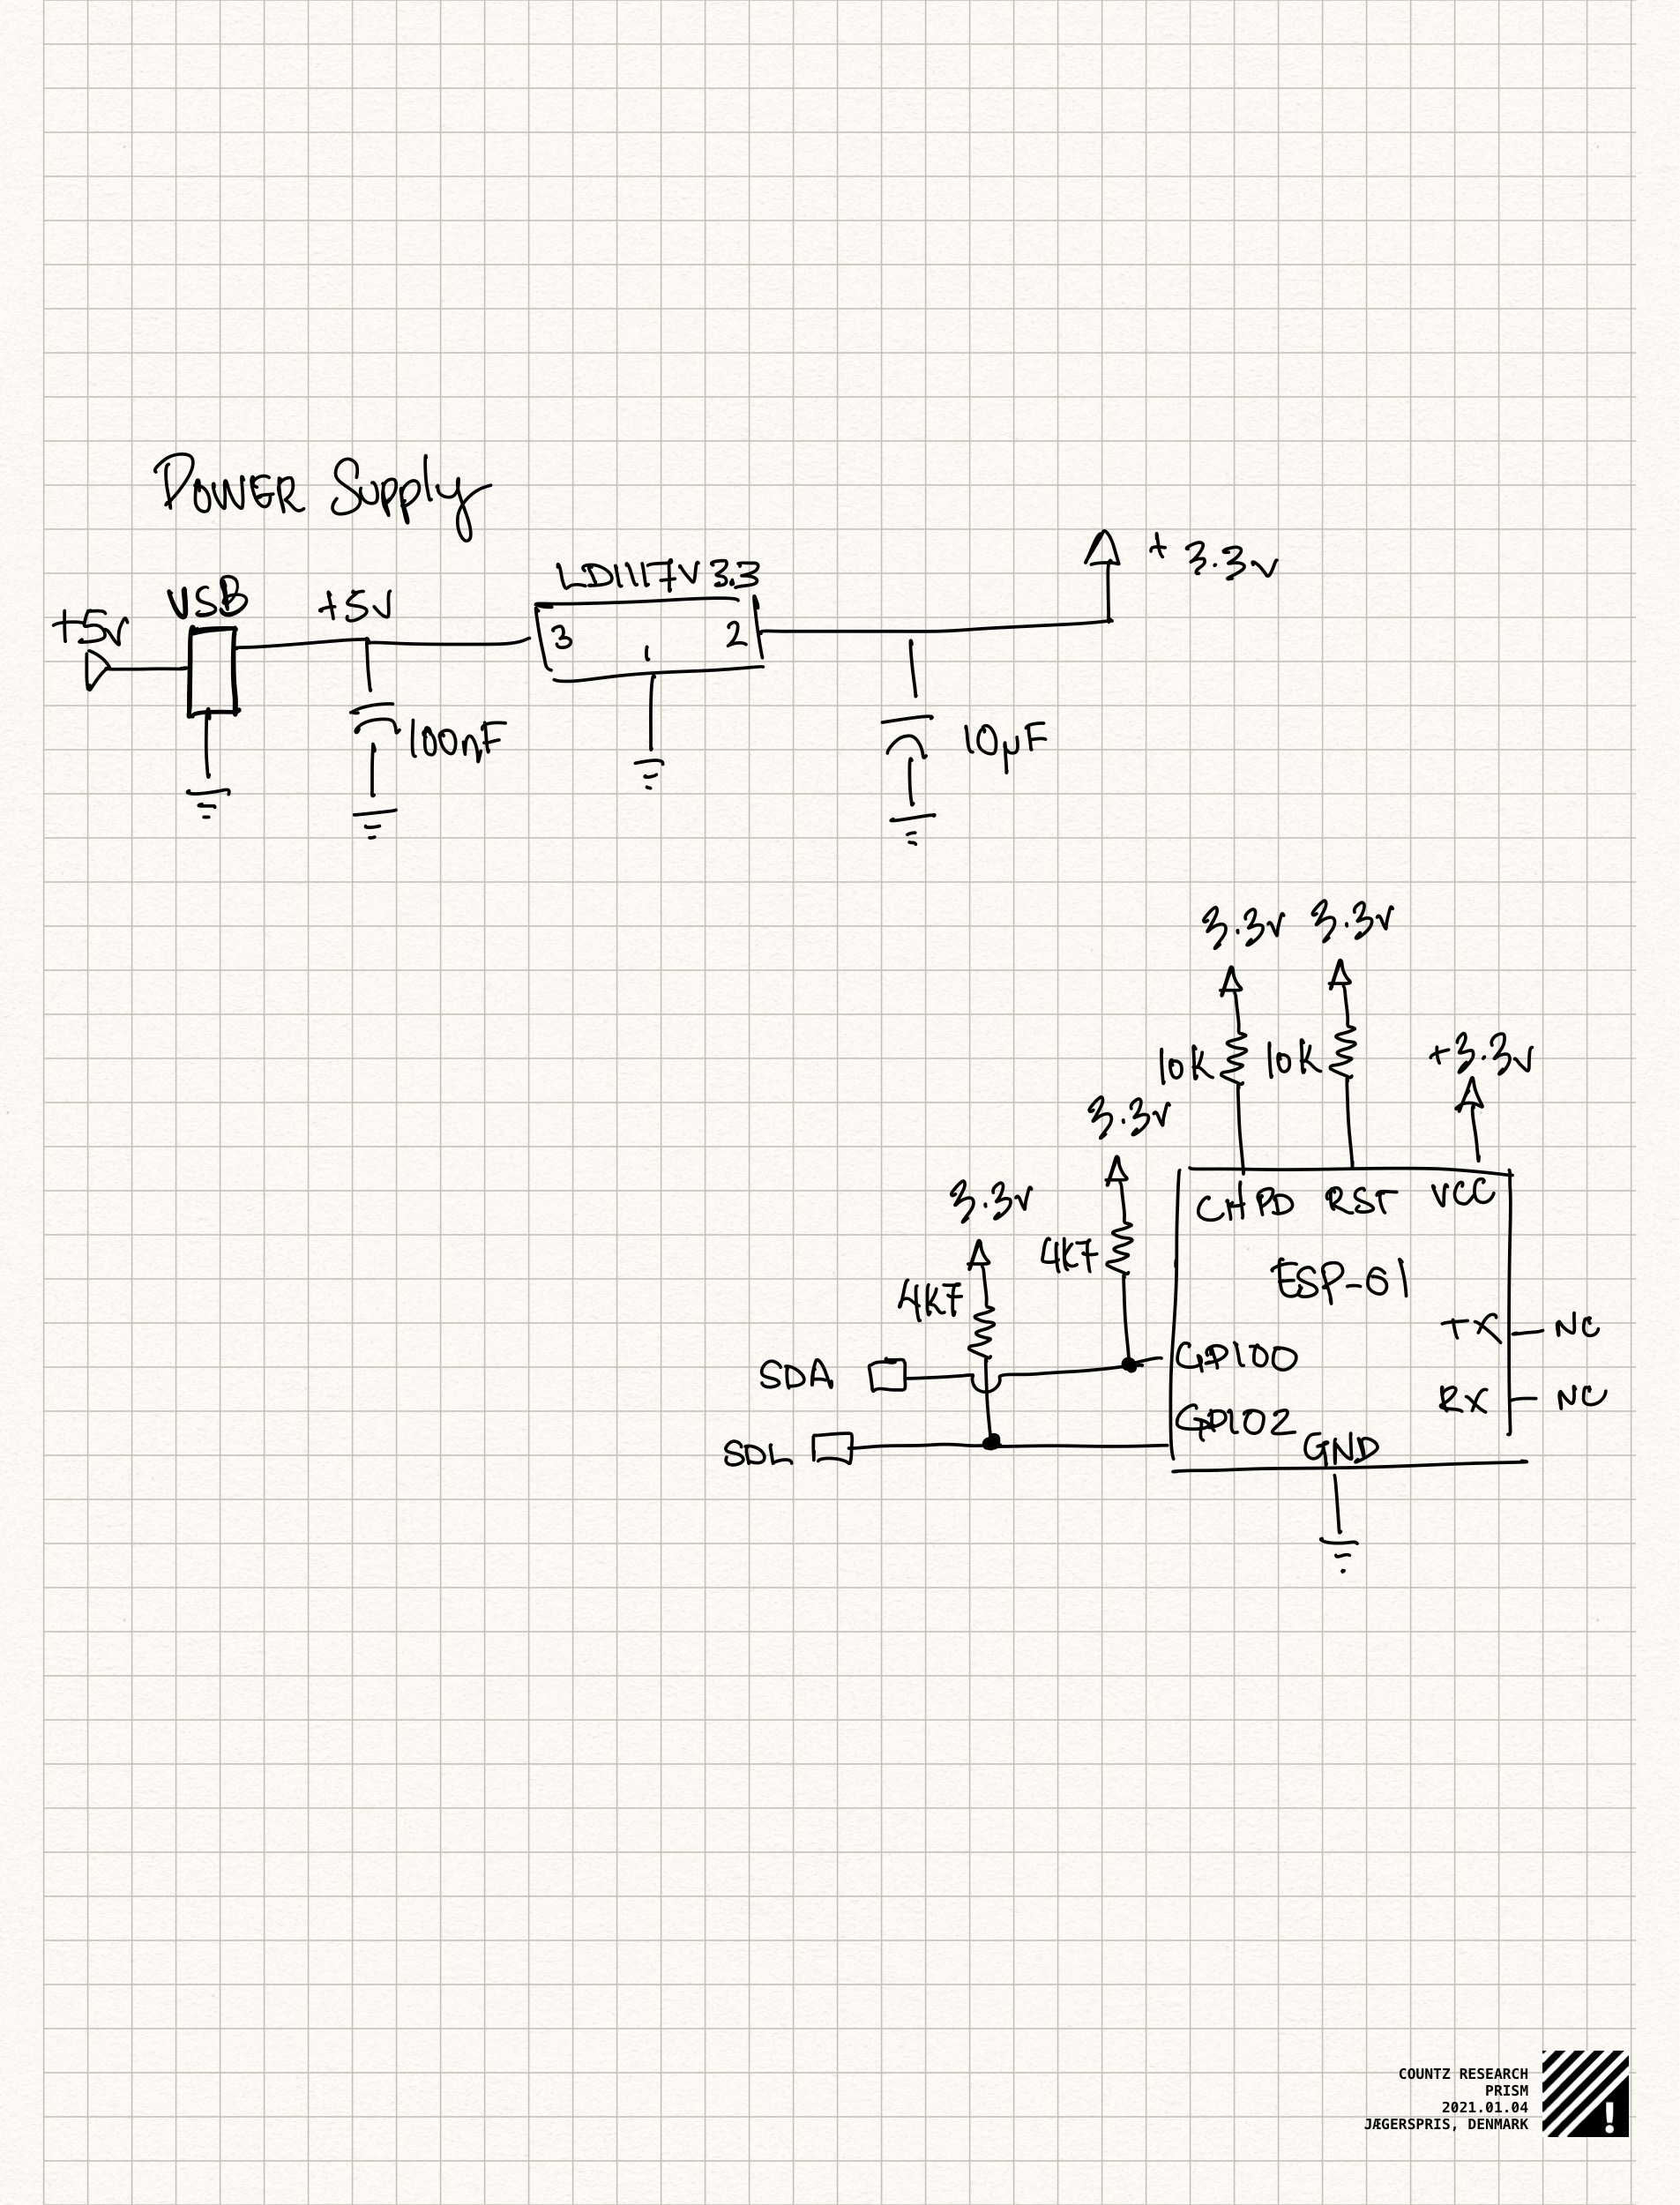 POWER Supply
+5v
USB
+5v
LD1117V 3.3
3
1
2
+ 3.3v
100nF
10µF
3.3v
3.3v
10K
10K
+3.3v
3.3v
3.3v
4K7
4K7
CHPD
RST
VCC
ESP-01
TX
NC
RX
NC
SDA
GPIO0
SDL
GPIO2
GND
COUNTZ RESEARCH
PRISM
2021.01.04
JÆGERSPRIS, DENMARK
!